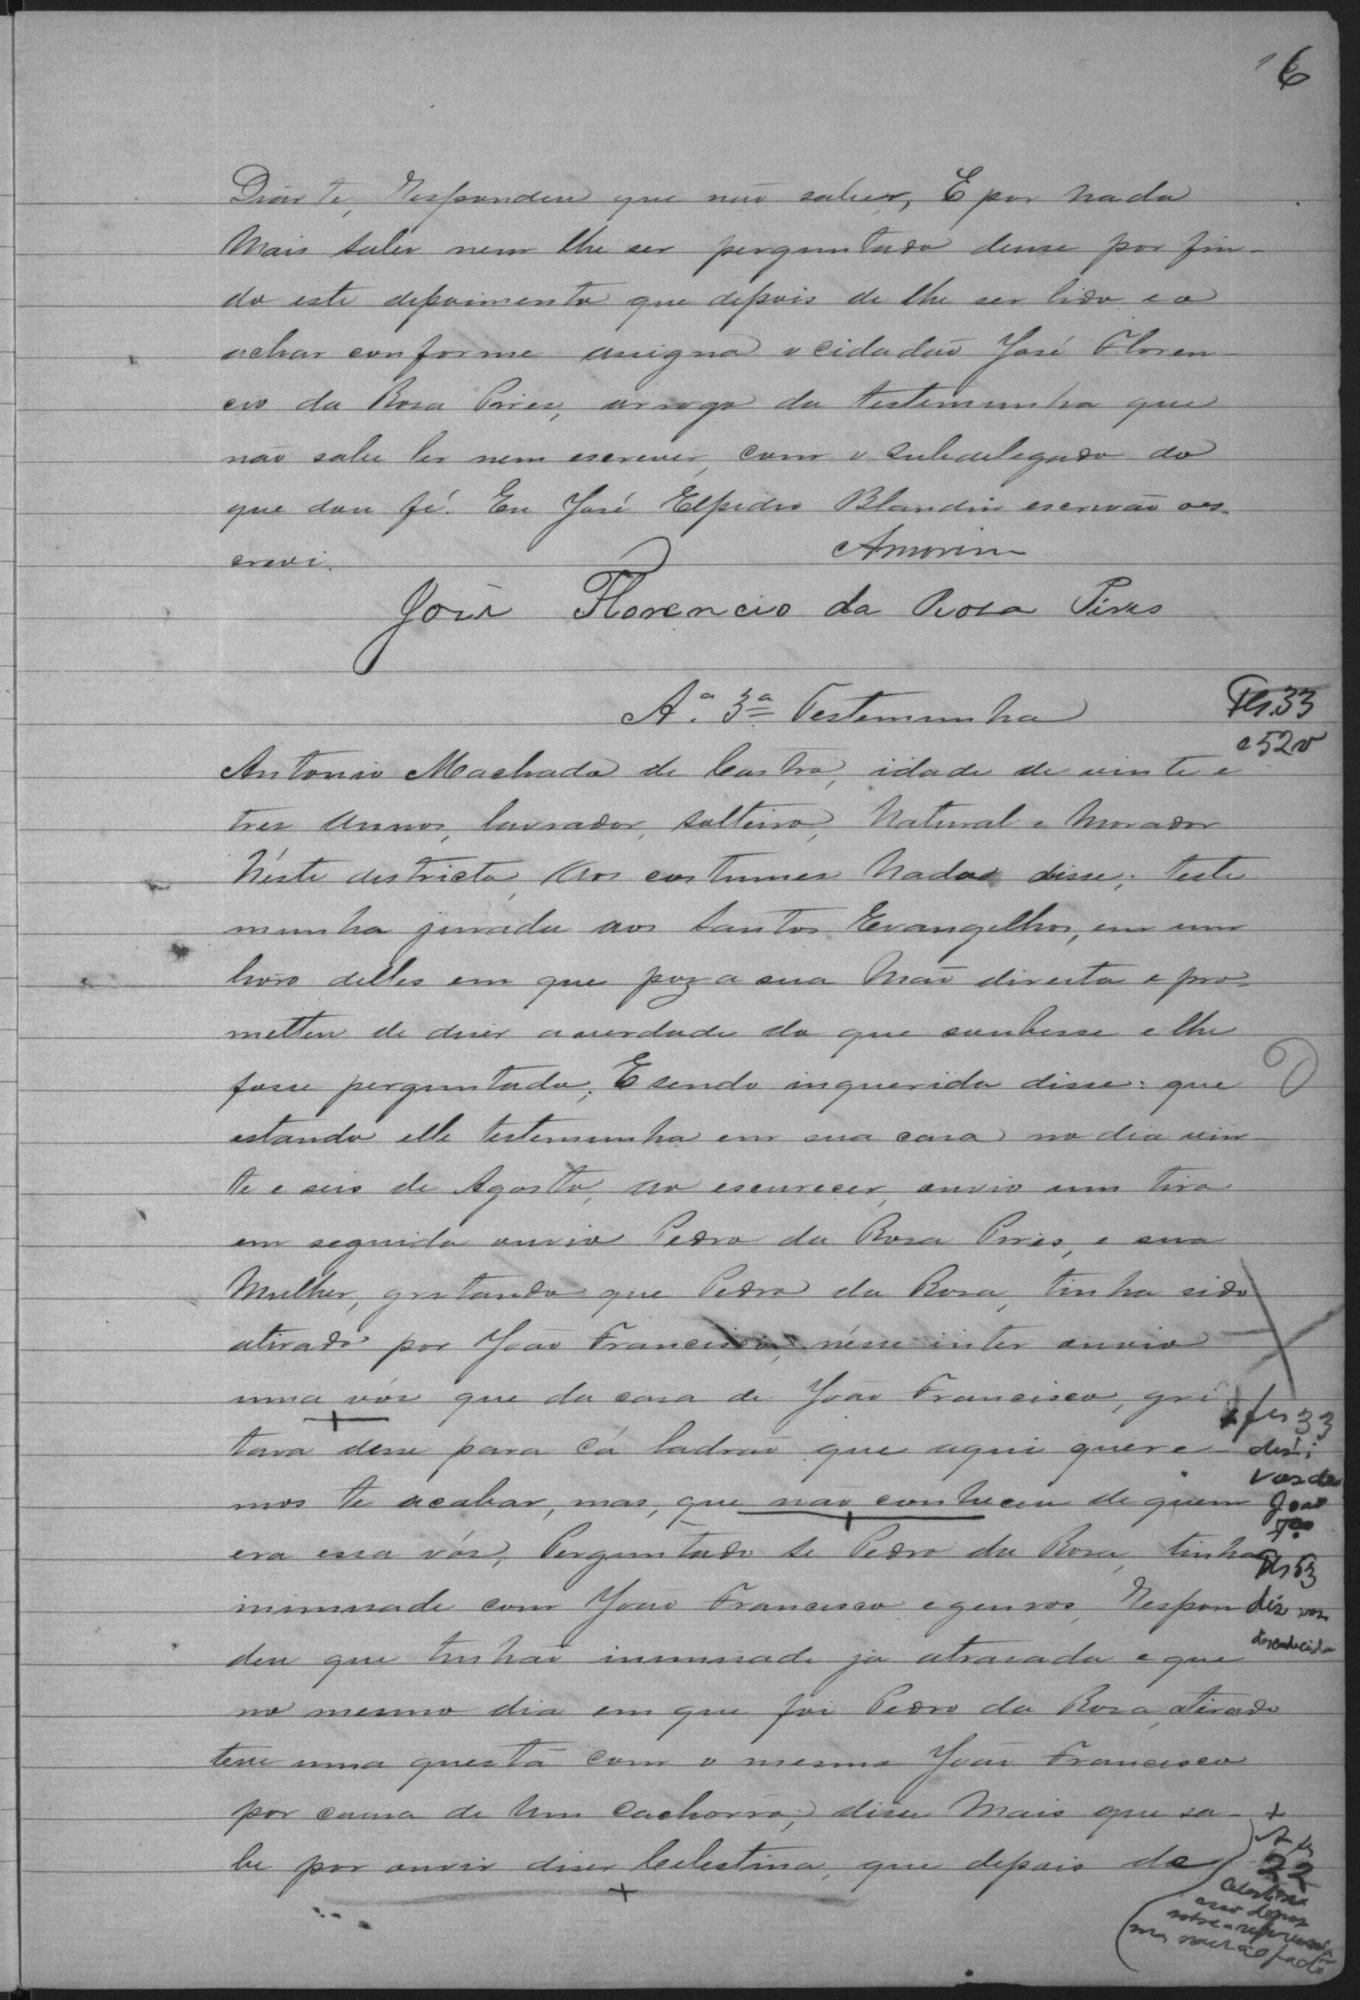 6
Duarte, Respondeu que não saber, E por nada
Mais saber nem lhe ser perguntado deuse por fin-
do este depoimento que depois de lhe ser lido e o
achar conforme assigna o cidadão José Floren-
cio da Rosa Pires, arrogo da testemunha que
não sabe ler nem escrever, com o subdelegado do
que dou fé. Eu José Elpidio Blandin escrivão oes-
crevi.
Amorim
José Florencio da Rosa Pires
A.ª 3ª Testemunha
Fls.33
e 52v
Antonio Machado de Castro, idade de vinte e
tres annos, lavrador, solteiro, Natural e Morador
Néste districto, Aos costumes Nada disse; teste
munha jurada aos Santos Evangelhos, em um
livro delles em que poz a sua Mão direita e pro-
metteu de diser a verdade do que soubesse e lhe
fosse perguntado; E sendo inquerida disse: que
estando elle testemunha em sua casa no dia vin-
te e seis de Agosto, ao escurecer, ouvio um tiro
em seguida ouvio Pedro da Rosa Pires, e sua
Mulher, gritando que Pedro da Rosa, tinha sido
atirado por João Francisco, nésse inter ouvio
uma vós que da casa de João Francisco, gri
tava desse para cá ladrão que aqui quere-
mos te acabar, mas, que não conheceu de quem
era essa vós; Perguntado se Pedro da Rosa, tinha
inimisade com João Francisco e genros, Respon
deu que tinhão inimisade já atrasada e que
no mesmo dia em que foi Pedro da Rosa atirado
teve uma questã com o mesmo João Francisco
por causa de hum Cachorro; disse Mais que sa-
be por ouvir diser Celestina, que depois de
fls 33
diz:
voz de
João
Fco
Fls 53
diz voz
desconhecida
+
22
Celestina